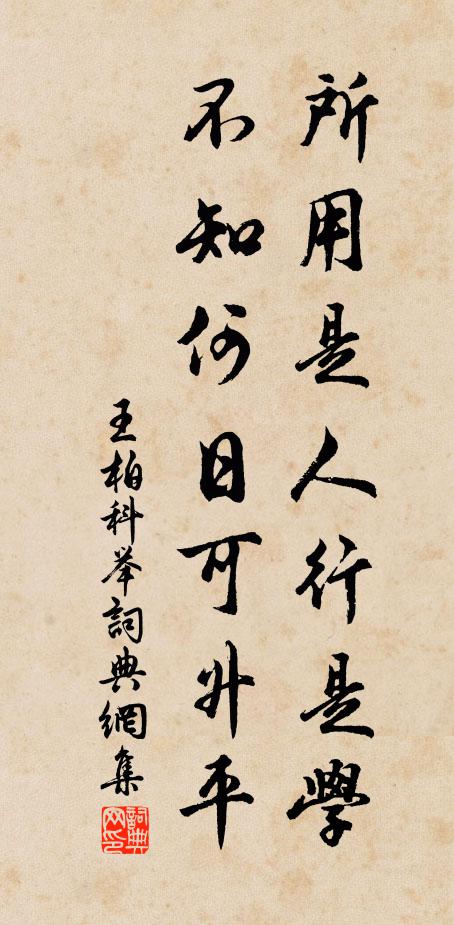 所用是人行是學
不知何日可升平
王柏科举詞典網集
詞典
网印